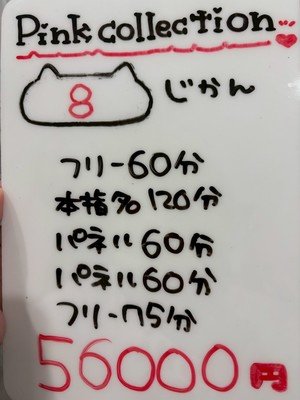 Pink collection
8 じかん
フリー60分
本指名120分
パネル60分
パネル60分
フリー75分
56000円